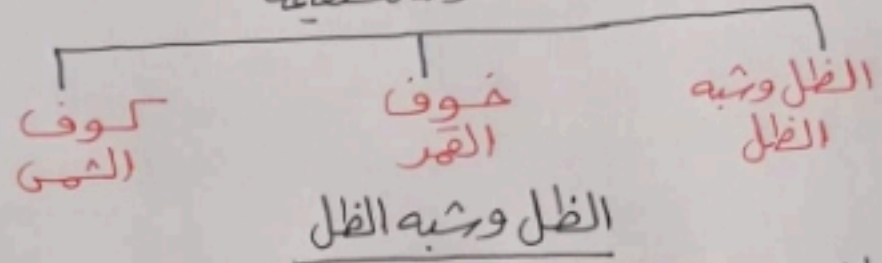 الظل وشبه
الظل
خسوف
القمر
كسوف
الشمس
الظل وشبه الظل